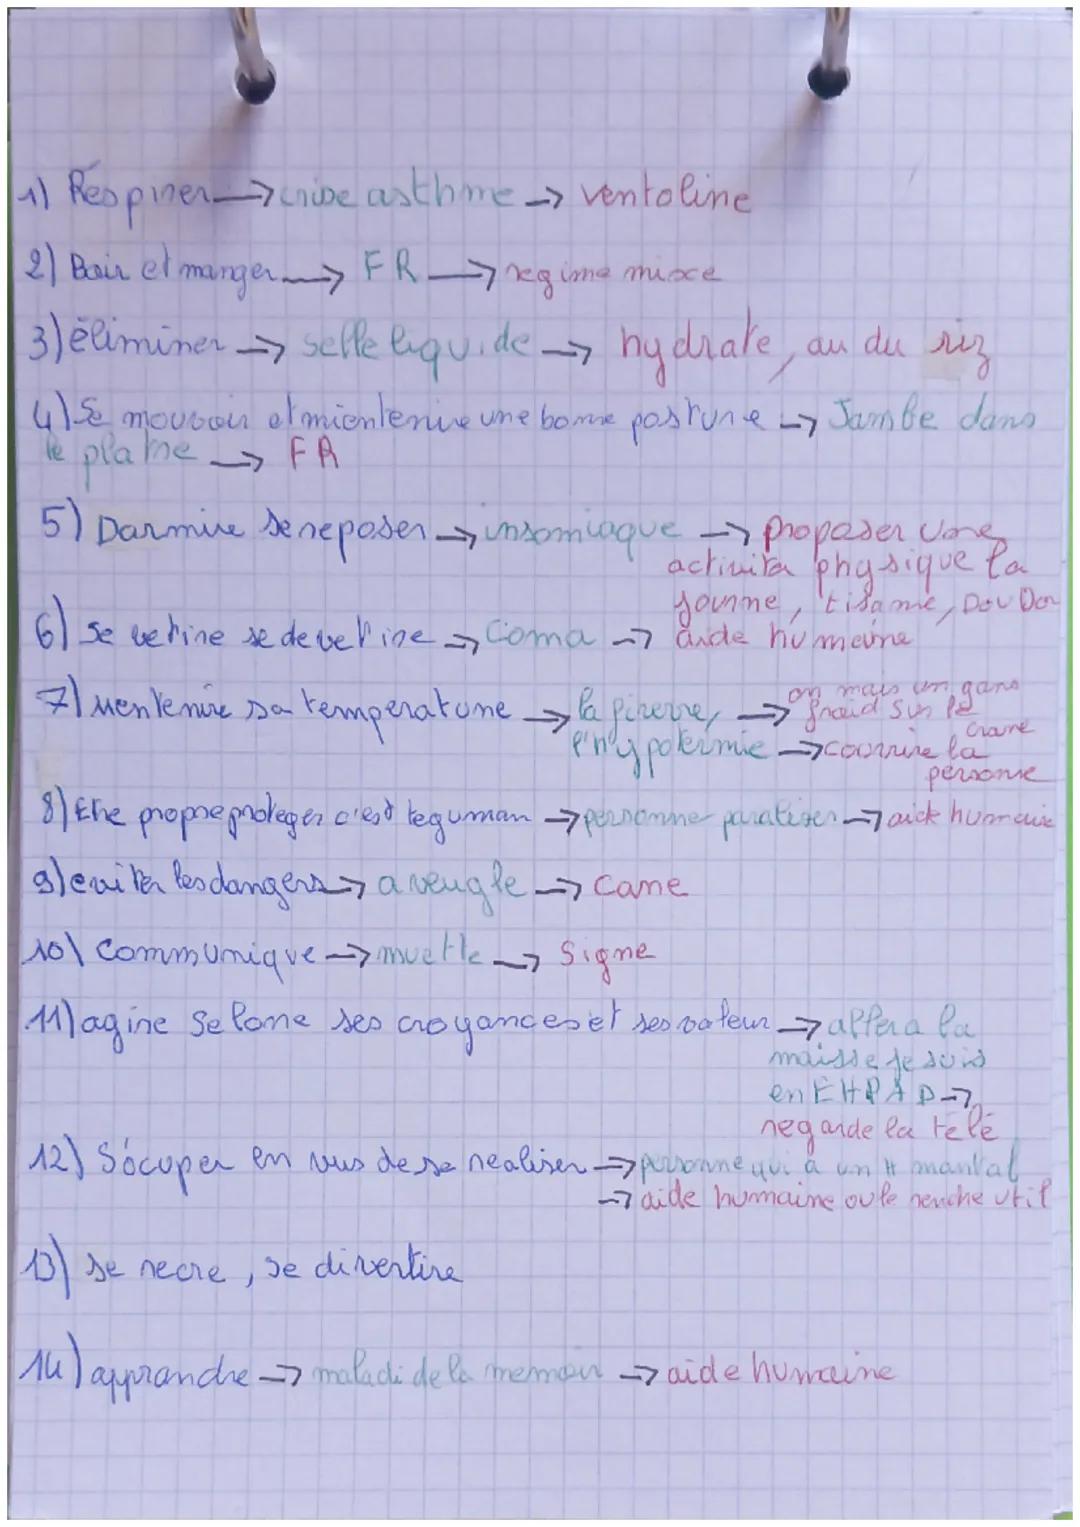 1) Respirer → crise asthme → ventoline
2) Boir et manger → FR → regime mixe
3) éliminer → selle liquide → hydrate, au du riz
4) Se mouvoir et mientenire une bonne posture → Jambe dans
le platre → FR
5) Darmire se reposer → insomiaque → proposer une
activita physique la
journne, tisame, DouDou
6) se vetire se devetire → Coma → aide humaine
7) Mentenire sa temperature → la fievre, → on mais un gans
froid sur le
crane
l'hypotermie → couvrire la
personne
8) Etre propre proteger c'est teguman → personne paraliser → aide humaine
9) eviter les dangers → aveugle → Cane
10) Communique → muette → Signe
11) agire Selone ses croyances et ses valeur → aller a la
maisse je suis
en EHPAD →
regarde la télé
12) S'ocuper en vus de se realiser → personne qui a un H mantal
→ aide humaine ou le renche util
13) se recre, se divertire
14) apprandre → maladi de la memoir → aide humaine